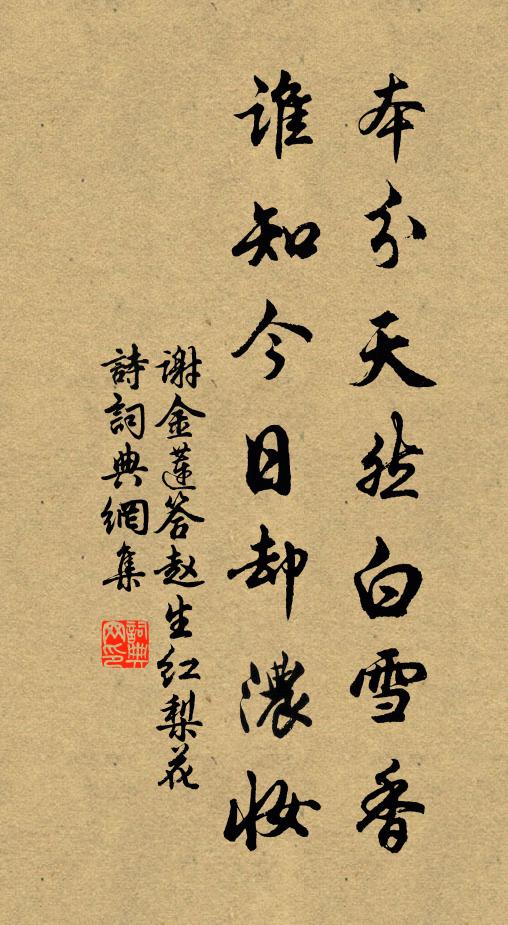 本分天然白雪香
谁知今日却濃妆
谢金莲答赵生红梨花
詩詞典網集
詞典網印